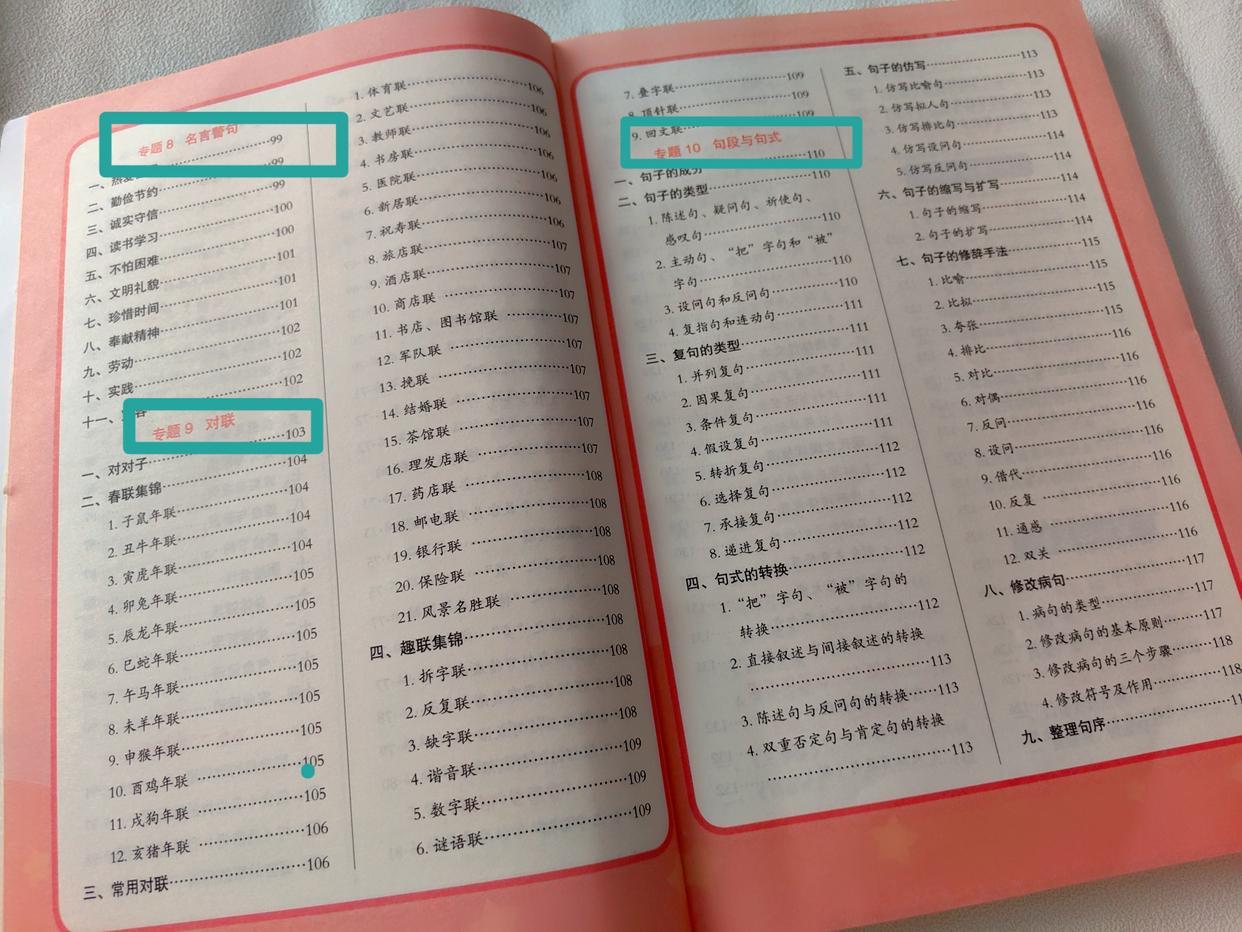 专题 8 名言警句
一、热爱……99
二、勤俭节约……99
三、诚实守信……99
四、读书学习……100
五、不怕困难……100
六、文明礼貌……101
七、珍惜时间……101
八、奉献精神……101
九、劳动……102
十、实践……102
十一、……102
专题 9 对联
一、对对子……103
二、春联集锦……104
1. 子鼠年联……104
2. 丑牛年联……104
3. 寅虎年联……104
4. 卯兔年联……105
5. 辰龙年联……105
6. 巳蛇年联……105
7. 午马年联……105
8. 未羊年联……105
9. 申猴年联……105
10. 酉鸡年联……105
11. 戌狗年联……105
12. 亥猪年联……106
三、常用对联……106
1. 体育联……106
2. 文艺联……106
3. 教师联……106
4. 书房联……106
5. 医院联……106
6. 新居联……106
7. 祝寿联……106
8. 旅店联……107
9. 酒店联……107
10. 商店联……107
11. 书店、图书馆联……107
12. 军队联……107
13. 挽联……107
14. 结婚联……107
15. 茶馆联……107
16. 理发店联……107
17. 药店联……108
18. 邮电联……108
19. 银行联……108
20. 保险联……108
21. 风景名胜联……108
四、趣联集锦……108
1. 拆字联……108
2. 反复联……108
3. 缺字联……108
4. 谐音联……109
5. 数字联……109
6. 谜语联……109
7. 叠字联……109
8. 顶针联……109
9. 回文联……109
专题 10 句段与句式
一、句子的成分……110
二、句子的类型……110
1. 陈述句、疑问句、祈使句、
感叹句……110
2. 主动句、“把”字句和“被”
字句……110
3. 设问句和反问句……110
4. 复指句和连动句……111
三、复句的类型……111
1. 并列复句……111
2. 因果复句……111
3. 条件复句……111
4. 假设复句……111
5. 转折复句……112
6. 选择复句……112
7. 承接复句……112
8. 递进复句……112
四、句式的转换……112
1. “把”字句、“被”字句的
转换……112
2. 直接叙述与间接叙述的转换
……113
3. 陈述句与反问句的转换……113
4. 双重否定句与肯定句的转换
……113
五、句子的仿写……113
1. 仿写比喻句……113
2. 仿写拟人句……113
3. 仿写排比句……113
4. 仿写设问句……114
5. 仿写反问句……114
六、句子的缩写与扩写……114
1. 句子的缩写……114
2. 句子的扩写……114
七、句子的修辞手法……115
1. 比喻……115
2. 比拟……115
3. 夸张……115
4. 排比……116
5. 对比……116
6. 对偶……116
7. 反问……116
8. 设问……116
9. 借代……116
10. 反复……116
11. 通感……116
12. 双关……116
八、修改病句……117
1. 病句的类型……117
2. 修改病句的基本原则……117
3. 修改病句的三个步骤……118
4. 修改符号及作用……118
九、整理句序……